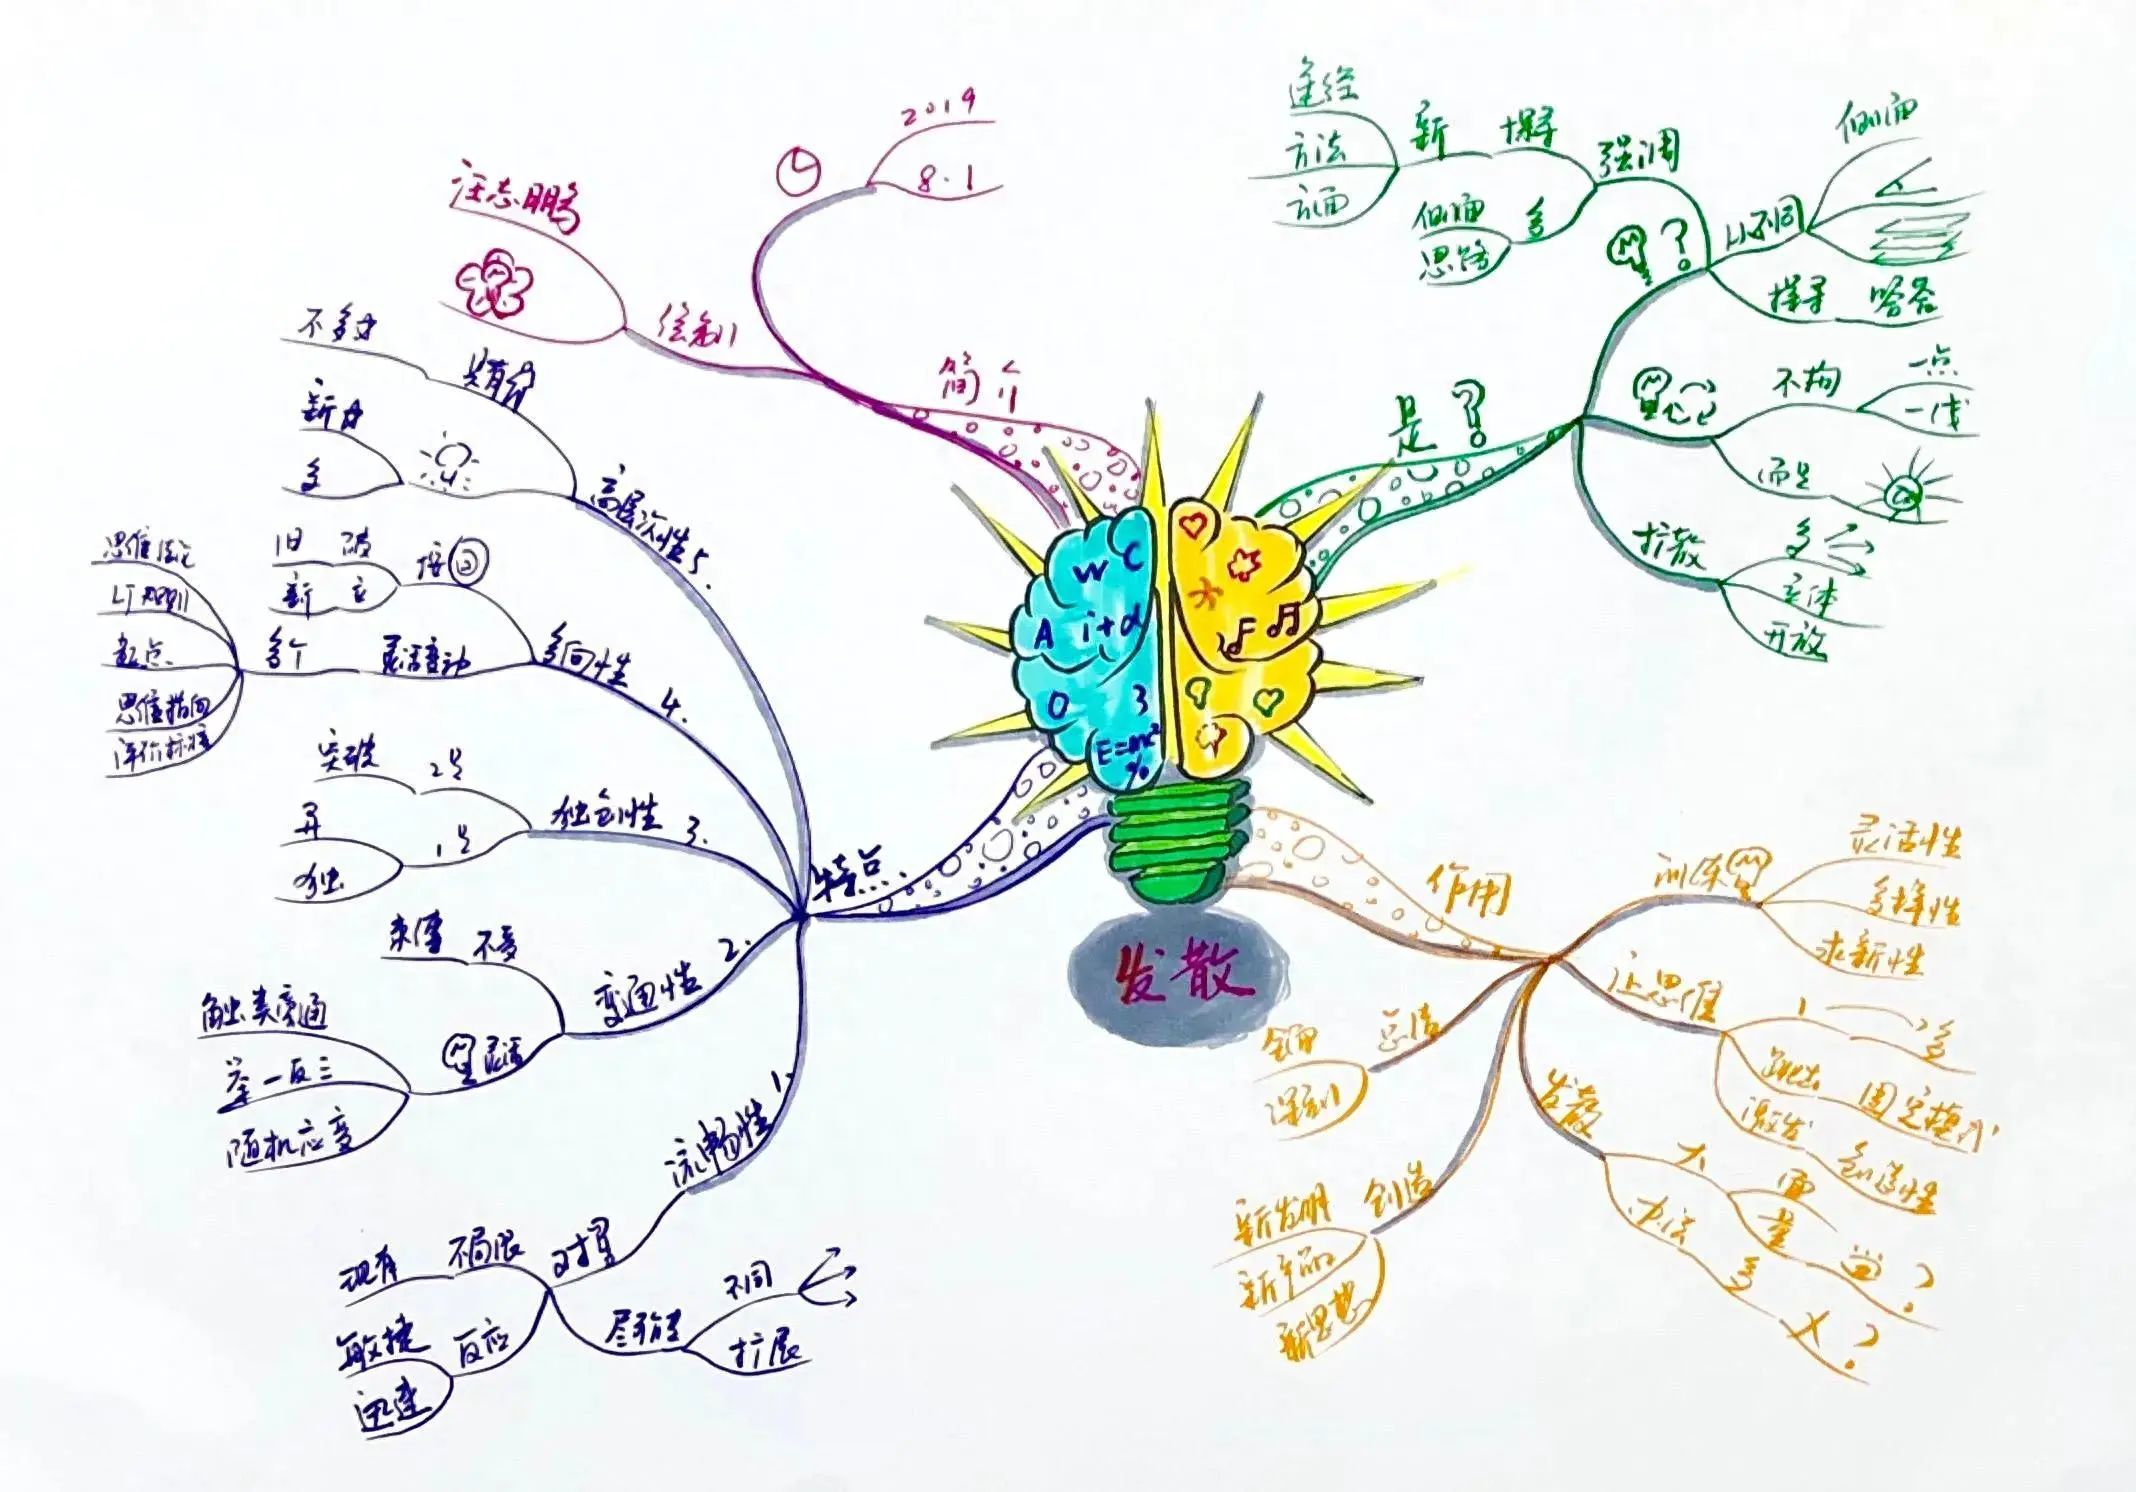 发散
W C
A i+d
O 3
E=mc²
%
简介
2019
8.1
绘制
汪志鹏
是?
强调
探寻
新
途经
方法
方面
多
侧面
思路
?
从不同
侧面
探寻 答案
不拘
一点
一线
而是
扩散
多
立体
开放
作用
训练
灵活性
多样性
求新性
让思维
1 多
跳出 固定模式
激发 创造性
发散
大
面
量 ?
办法 多 ?
创造
新发明
新产品
新思想
总结
全面
深刻
特点
1.
流畅性
对答
不局限
现有
反应
敏捷
迅速
尽可能
不同
扩展
2.
变通性
不受
束缚
灵活
触类旁通
举一反三
随机应变
3.
独创性
2是
突破
1是
异
独
4.
多向性
破
旧
立
新
灵活变动
多个
思维结论
从规则
起点
思维指向
评价标准
5.
高层次性
具有
不多于
新
多